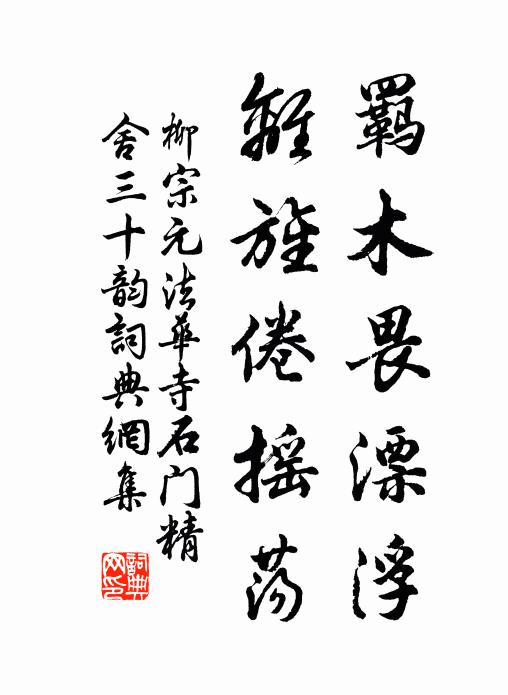 羁木畏漂浮
離旌倦摇荡
柳宗元法華寺石门精
舍三十韵詞典網集
詞典
网印